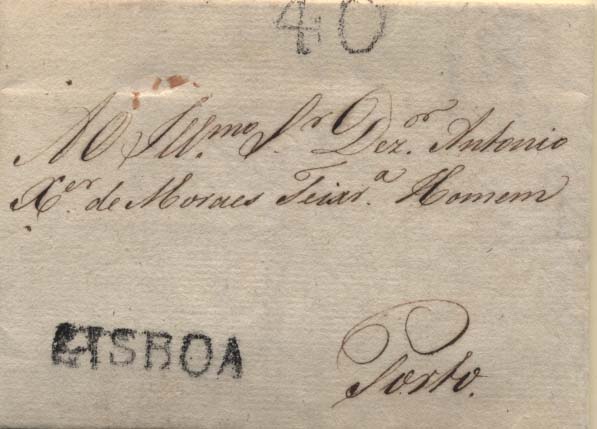 40
Ao Ill.mo Sr. Dez.or Antonio
X.er de Moraes Teixr.a Homem
LISBOA
Porto.